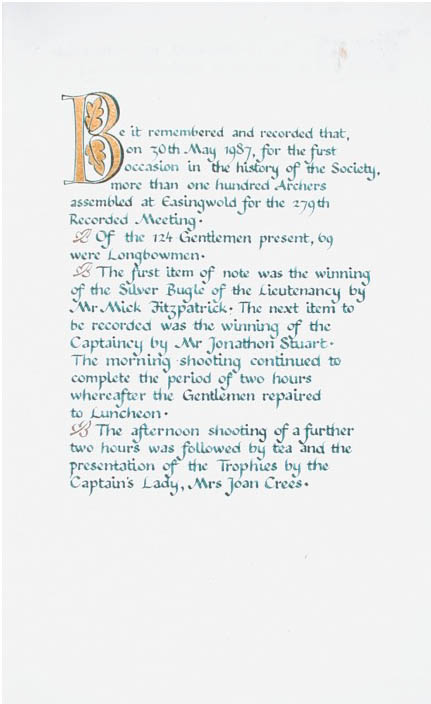 Be it remembered and recorded that,
on 30th May 1987, for the first
occasion in the history of the Society,
more than one hundred Archers
assembled at Easingwold for the 279th
Recorded Meeting.
Of the 124 Gentlemen present, 69
were Longbowmen.
The first item of note was the winning
of the Silver Bugle of the Lieutenancy by
Mr Mick Fitzpatrick. The next item to
be recorded was the winning of the
Captaincy by Mr Jonathon Stuart.
The morning shooting continued to
complete the period of two hours
whereafter the Gentlemen repaired
to Luncheon.
The afternoon shooting of a further
two hours was followed by tea and the
presentation of the Trophies by the
Captain's Lady, Mrs Joan Crees.